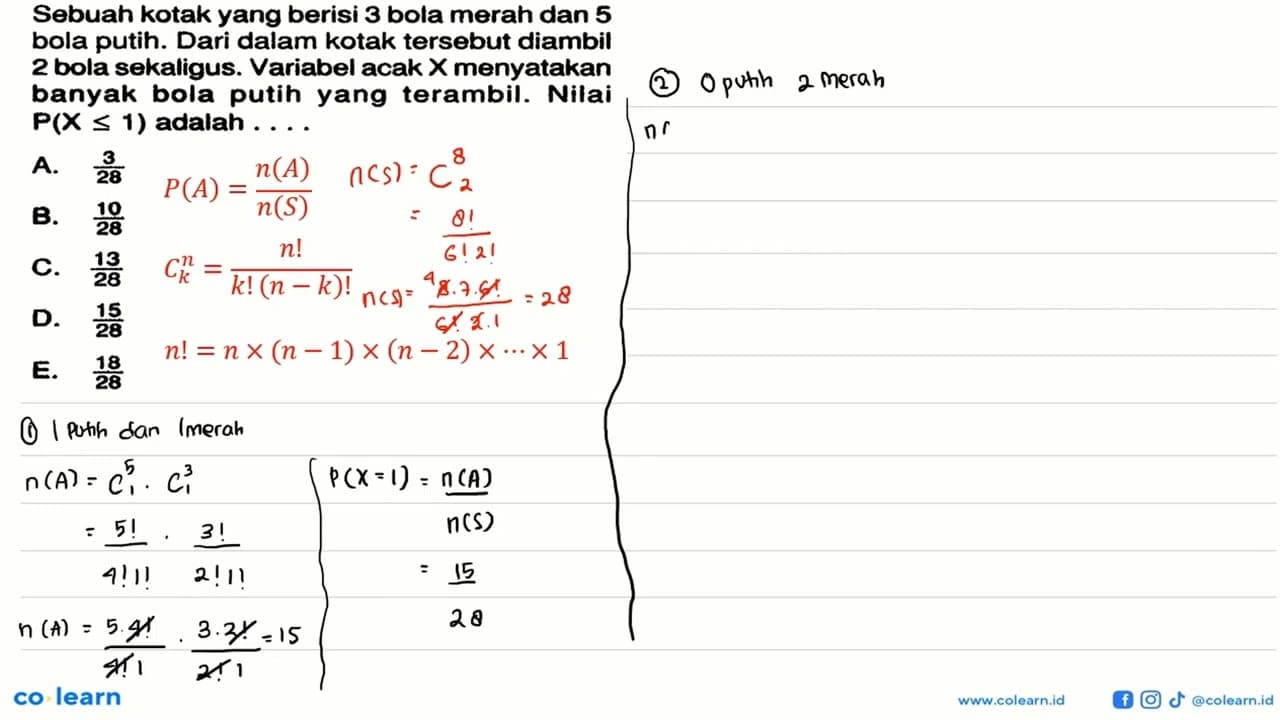 Sebuah kotak yang berisi 3 bola merah dan 5
bola putih. Dari dalam kotak tersebut diambil
2 bola sekaligus. Variabel acak X menyatakan
banyak bola putih yang terambil. Nilai
P(X ≤ 1) adalah . . . .
A. 3/28
B. 10/28
C. 13/28
D. 15/28
E. 18/28
P(A) = n(A)/n(S)
C^n_k = n!/(k! (n − k)!)
n! = n × (n − 1) × (n − 2) × ⋯ × 1
n(S) = C^8_2
= 8!/(6! 2!)
n(S) = 4 8.7.6!/(6! 2.1) = 28
① 1 putih dan 1 merah
n(A) = C^5_1 . C^3_1
= 5!/(4!1!) . 3!/(2!1!)
n(A) = 5.4!/(4! 1) . 3.2!/(2! 1) = 15
P(X = 1) = n(A)/n(S)
= 15/28
② 0 putih 2 merah
n(
co learn
www.colearn.id
@colearn.id